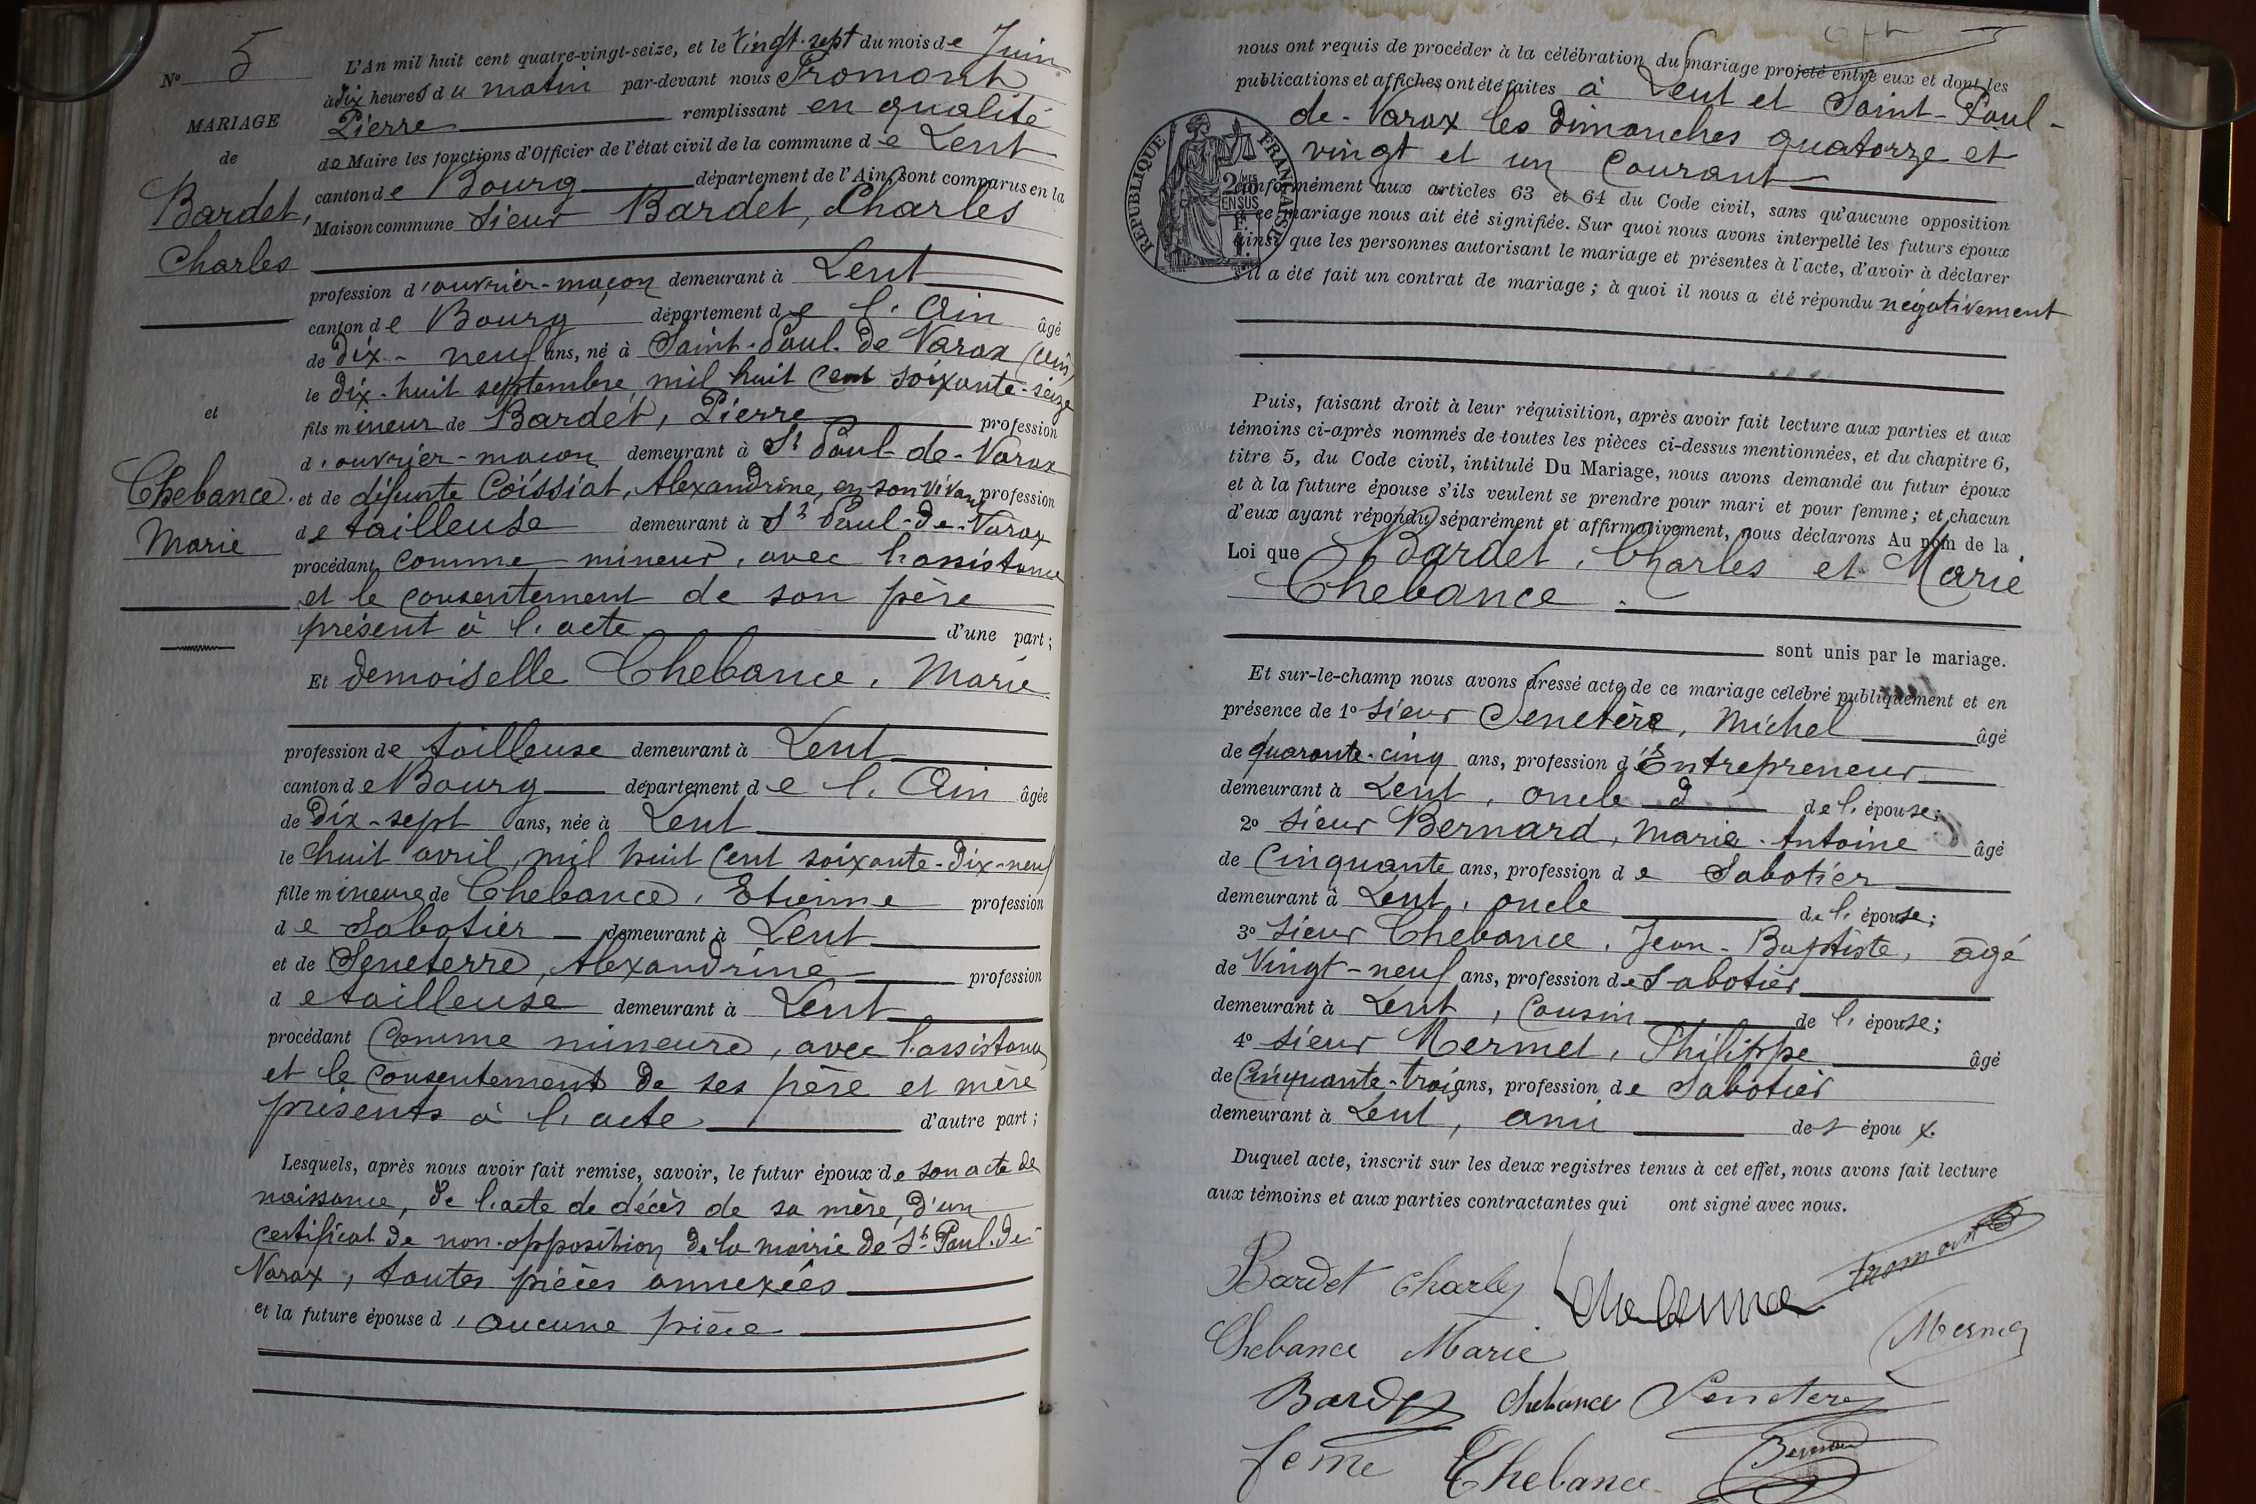 N° 5
MARIAGE
de
Bardet,
Charles
et
Chebance
Marie
L'An mil huit cent quatre-vingt-seize, et le Vingt-sept du mois de Juin
à dix heures du matin par-devant nous Promont
Pierre remplissant en qualité
de Maire les fonctions d'Officier de l'état civil de la commune de Lent
canton de Bourg département de l'Ain, sont comparus en la
Maison commune sieur Bardet, Charles
profession d'ouvrier-maçon demeurant à Lent
canton de Bourg département de l'Ain âgé
de dix-neuf ans, né à Saint-Paul-de Varax (Ain)
le dix-huit septembre mil huit cent soixante-seize
fils mineur de Bardet, Pierre profession
d'ouvrier-maçon demeurant à St Paul-de-Varax
et de défunte Coissiat, Alexandrine, en son vivant profession
de tailleuse demeurant à St Paul-de-Varax
procédant comme mineur, avec l'assistance
et le consentement de son père
présent à l'acte d'une part;
Et demoiselle Chebance, Marie
profession de tailleuse demeurant à Lent
canton de Bourg département de l'Ain âgée
de Dix-sept ans, née à Lent
le huit avril, mil huit cent soixante-dix-neuf
fille mineure de Chebance, Etienne profession
de Sabotier demeurant à Lent
et de Seneterre, Alexandrine profession
de tailleuse demeurant à Lent
procédant comme mineure, avec l'assistance
et le consentement de ses père et mère
présents à l'acte d'autre part;
Lesquels, après nous avoir fait remise, savoir, le futur époux de son acte de
naissance, de l'acte de décès de sa mère, d'un
certificat de non-opposition de la mairie de St Paul-de-
Varax, toutes pièces annexées
et la future épouse d'aucune pièce
nous ont requis de procéder à la célébration du mariage projeté entre eux et dont les
publications et affiches ont été faites à Lent et Saint-Paul-
de-Varax les dimanches quatorze et
vingt et un courant
RÉPUBLIQUE FRANÇAISE
conformément aux articles 63 et 64 du Code civil, sans qu'aucune opposition
à ce mariage nous ait été signifiée. Sur quoi nous avons interpellé les futurs époux
ainsi que les personnes autorisant le mariage et présentes à l'acte, d'avoir à déclarer
s'il a été fait un contrat de mariage; à quoi il nous a été répondu négativement
Puis, faisant droit à leur réquisition, après avoir fait lecture aux parties et aux
témoins ci-après nommés de toutes les pièces ci-dessus mentionnées, et du chapitre 6,
titre 5, du Code civil, intitulé Du Mariage, nous avons demandé au futur époux
et à la future épouse s'ils veulent se prendre pour mari et pour femme; et chacun
d'eux ayant répondu séparément et affirmativement, nous déclarons Au nom de la
Loi que Bardet, Charles et Marie
Chebance.
sont unis par le mariage.
Et sur-le-champ nous avons dressé acte de ce mariage célébré publiquement et en
présence de 1° sieur Senetère, Michel âgé
de quarante-cinq ans, profession d'Entrepreneur
demeurant à Lent, oncle de l'épouse;
2° sieur Bernard, Marie-Antoine âgé
de Cinquante ans, profession de Sabotier
demeurant à Lent, oncle de l'épouse;
3° sieur Chebance, Jean-Baptiste, âgé
de Vingt-neuf ans, profession de Sabotier
demeurant à Lent, cousin de l'épouse;
4° sieur Mermet, Philippe âgé
de Cinquante-trois ans, profession de Sabotier
demeurant à Lent, ami des époux.
Duquel acte, inscrit sur les deux registres tenus à cet effet, nous avons fait lecture
aux témoins et aux parties contractantes qui ont signé avec nous.
Bardet Charles Chebance Promont
Chebance Marie Mermet
Bardet Chebance Senetere
feme Chebance Bernard